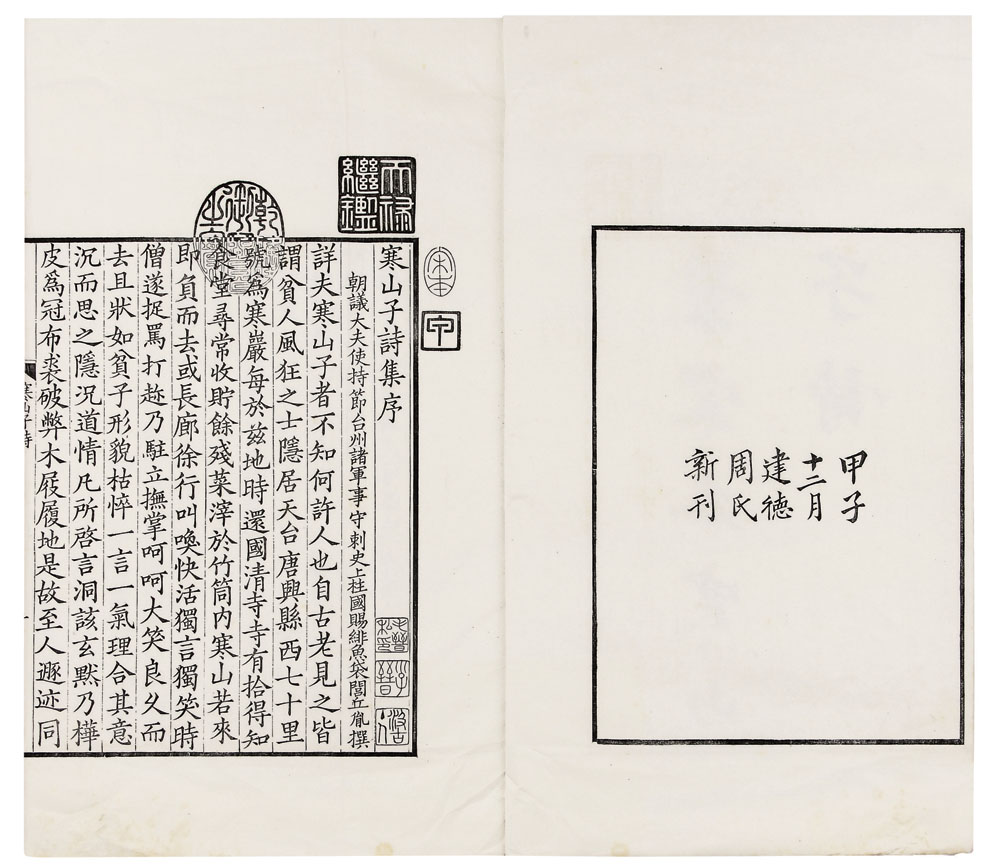 甲子
十二月
建德
周氏
新刊
天祿
繼鑑
宋本
寒山子詩集序
朝議大夫使持節台州諸軍事守刺史上柱國賜緋魚袋閭丘胤撰
詳夫寒山子者不知何許人也自古老見之皆
謂貧人風狂之士隱居天台唐興縣西七十里
號爲寒巖每於兹地時還國清寺寺有拾得知
食堂尋常收貯餘殘菜滓於竹筒内寒山若來
即負而去或長廊徐行叫喚快活獨言獨笑時
僧遂捉罵打趂乃駐立撫掌呵呵大笑良久而
去且狀如貧子形貌枯悴一言一氣理合其意
沉而思之隱况道情凡所啓言洞該玄默乃樺
皮爲冠布裘破弊木屐履地是故至人遯迹同
寒山子詩